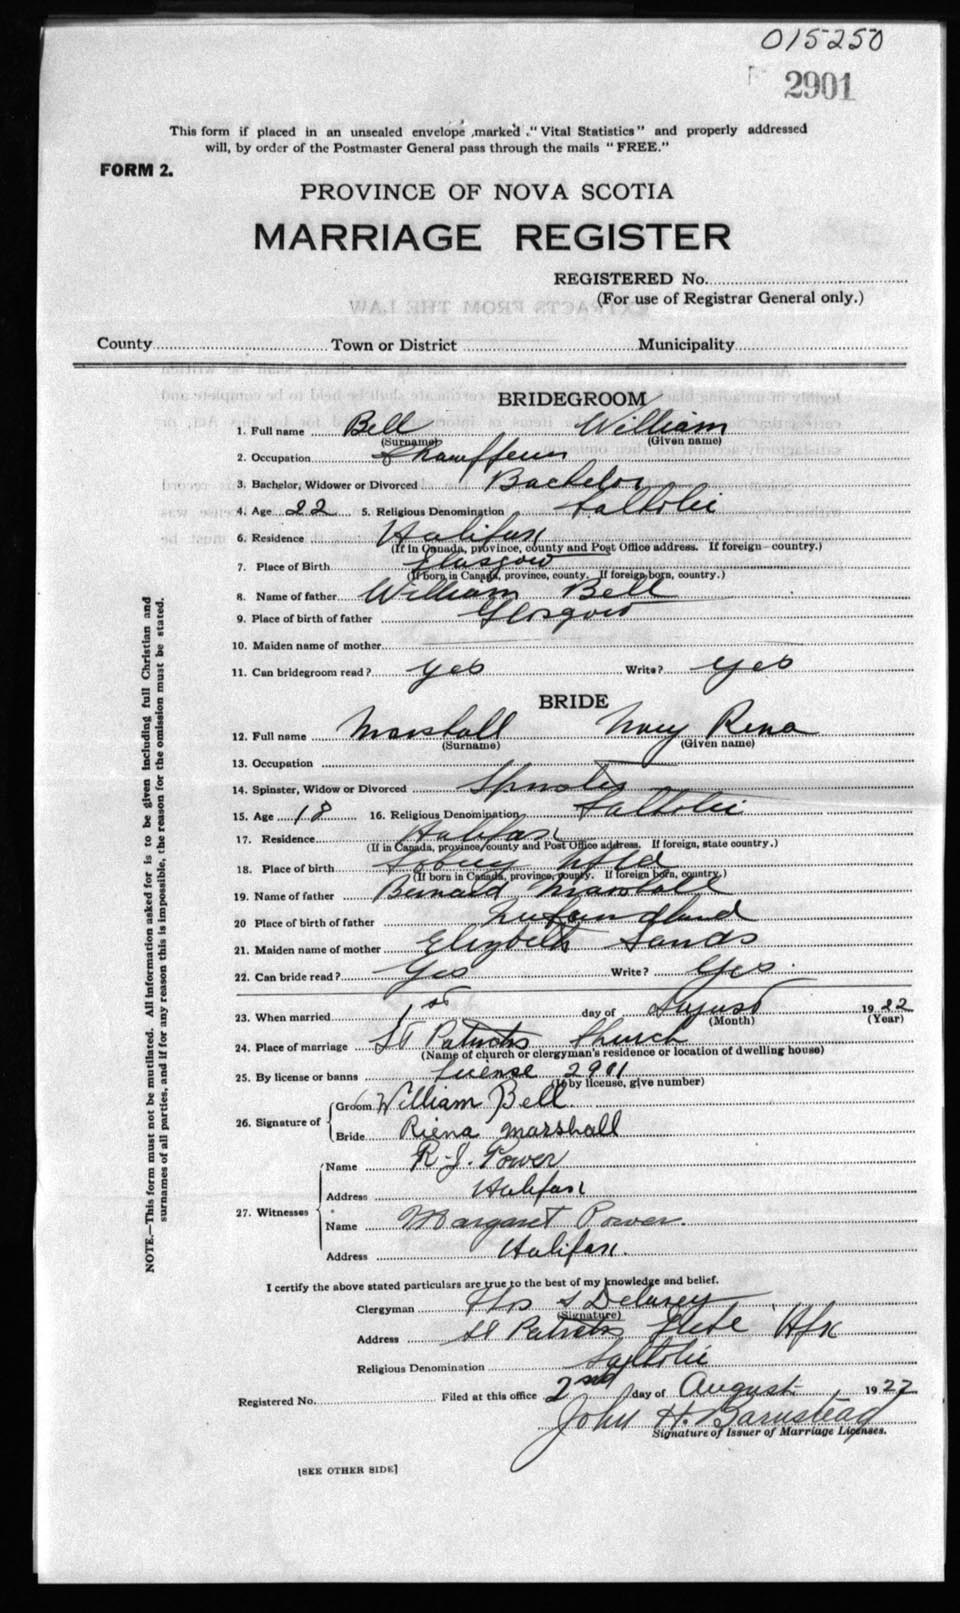 015250
2901
This form if placed in an unsealed envelope marked "Vital Statistics" and properly addressed
will, by order of the Postmaster General pass through the mails "FREE."
FORM 2.
PROVINCE OF NOVA SCOTIA
MARRIAGE REGISTER
REGISTERED No.
(For use of Registrar General only.)
County Town or District Municipality
BRIDEGROOM
1. Full name Bell William
(Surname) (Given name)
2. Occupation
3. Bachelor, Widower or Divorced Bachelor
4. Age 22 5. Religious Denomination Catholic
6. Residence Halifax
(If in Canada, province, county and Post Office address. If foreign country.)
7. Place of Birth Glasgow
(If born in Canada, province, county. If foreign born, country.)
8. Name of father William Bell
9. Place of birth of father Glasgow
10. Maiden name of mother
11. Can bridegroom read? yes Write? yes
BRIDE
12. Full name Marshall Mary Rena
(Surname) (Given name)
13. Occupation
14. Spinster, Widow or Divorced Spinster
15. Age 18 16. Religious Denomination Catholic
17. Residence Halifax
(If in Canada, province, county and Post Office address. If foreign, state country.)
18. Place of birth Nfld
(If born in Canada, province, county. If foreign born, country.)
19. Name of father Bernard Marshall
20 Place of birth of father
21. Maiden name of mother Elizabeth Sands
22. Can bride read? Yes Write? Yes.
23. When married 1st day of August 1922
(Month) (Year)
24. Place of marriage St Patricks Church
(Name of church or clergyman's residence or location of dwelling house)
25. By license or banns License 2901
(If by license, give number)
26. Signature of
Groom William Bell
Bride Riena Marshall
27. Witnesses
Name R. J. Power
Address Halifax
Name Margaret Power.
Address Halifax.
I certify the above stated particulars are true to the best of my knowledge and belief.
Clergyman Thos S Delaney
(Signature)
Address St Patricks Glebe Hfx
Religious Denomination Catholic
Registered No. Filed at this office 2nd day of August 1922
John H. Barnstead
Signature of Issuer of Marriage Licenses.
[SEE OTHER SIDE]
NOTE.—This form must not be mutilated. All information asked for is to be given including full Christian and
surnames of all parties, and if for any reason this is impossible, the reason for the omission must be stated.